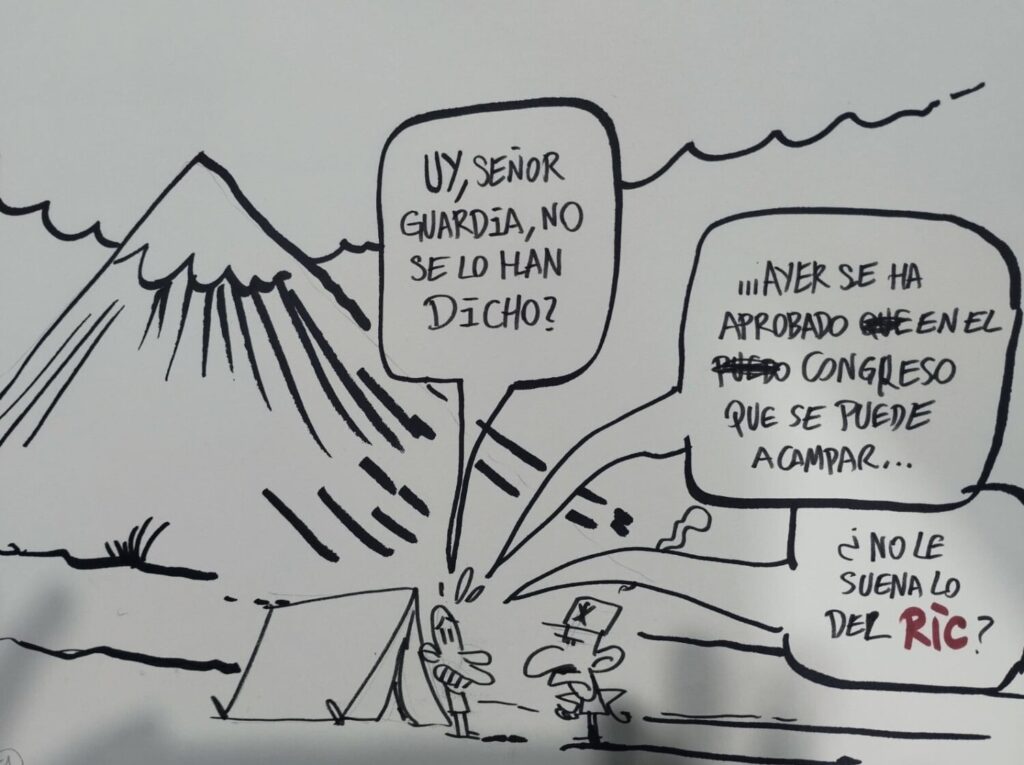 UY, SEÑOR
GUARDIA, NO
SE LO HAN
DICHO?
...AYER SE HA
APROBADO QUE EN EL
PUEDO CONGRESO
QUE SE PUEDE
ACAMPAR...
¿NO LE
SUENA LO
DEL RIC?